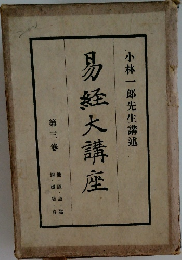 小林一郎先生講述
易經大講座
第三卷